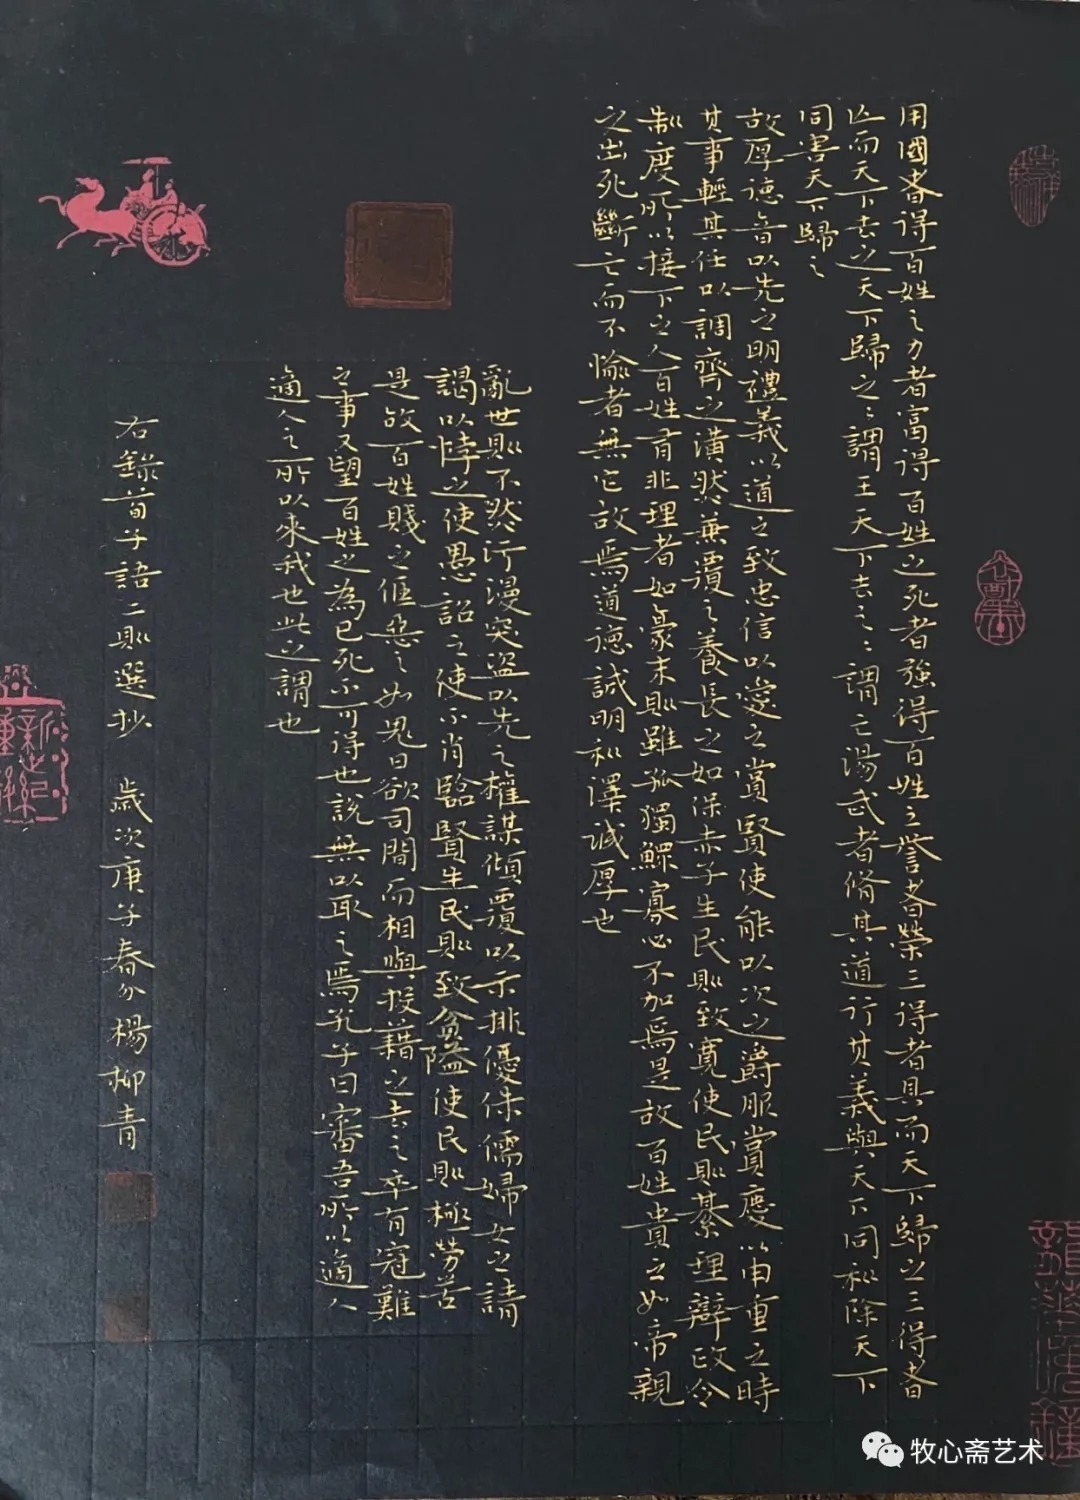 用國者得百姓之力者富得百姓之死者強得百姓之譽者榮三得者具而天下歸之三得者
亾而天下去之天下歸之〻謂王天下去之〻謂亡湯武者脩其道行其義與天下同利除天下
同害天下歸之
故厚德音以先之明禮義以道之致忠信以愛之賞賢使能以次之爵服賞慶以申重之時
其事輕其任以調齊之潢然兼覆之養長之如保赤子生民則致寬使民則綦理辯政令
制度所以接下之人百姓有非理者如豪末則雖孤獨鰥寡必不加焉是故百姓貴之如帝親
之出死斷亡而不愉者無它故焉道德誠明利澤誠厚也
亂世則不然污漫突盜以先之權謀傾覆以示排優侏儒婦女之請
謁以悖之使愚詔之使不肖臨賢生民則致貧隘使民則極勞苦
是故百姓賤之𠉂惡之如鬼日欲司間而相與投藉之去之卒有寇難
之事又望百姓之為己死不可得也說無以取之焉孔子曰審吾所以適人
適人之所以來我也此之謂也
右錄荀子語二則選抄 歲次庚子春分楊柳青
牧心斋艺术